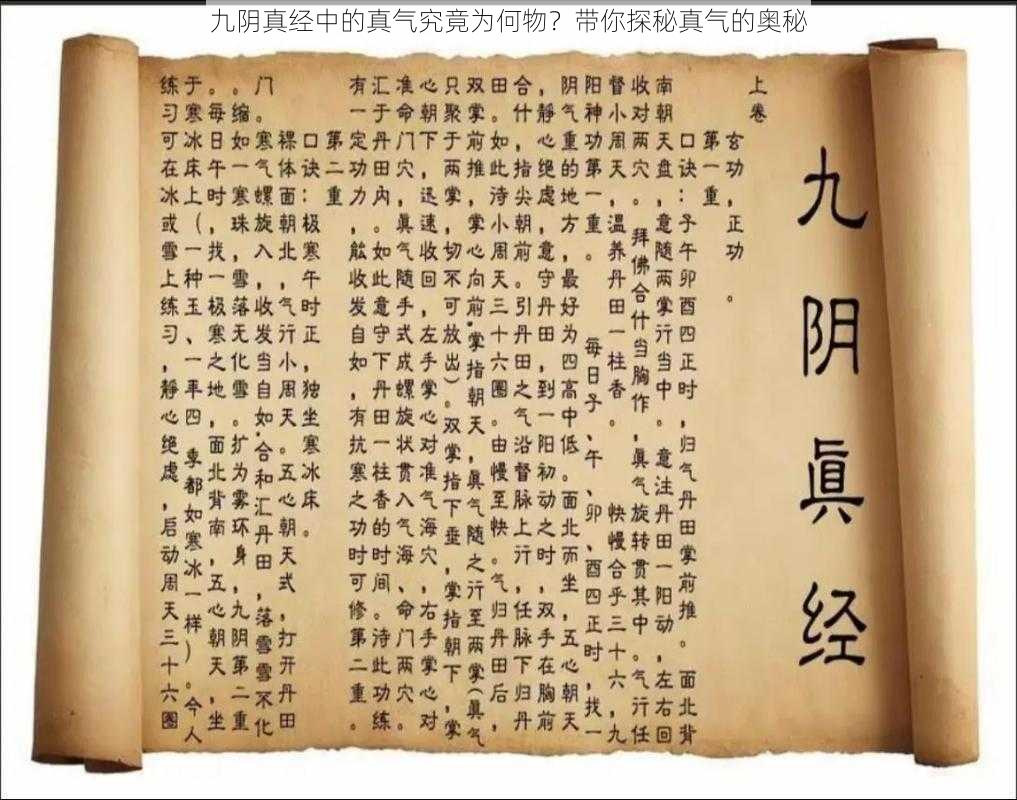 九阴真经中的真气究竟为何物？带你探秘真气的奥秘
九阴眞经
上卷
玄功，正功。
第一重，
口诀：子午卯酉四正时，归气丹田掌前推。面北背
南朝天盘，意随两掌行当中。意注丹田一阳动，左右回
收对两穴。，拜佛合什当胸作，眞气旋转贯其中。气行任
督小周天，温养丹田一柱香。快慢合乎三十六，九
阳神功第一重。每日子、午、卯、酉四正时，找一
阴气重的地方，最好为四高中低。面北而坐，五心朝天
，静心绝虑，意守丹田，到一阳初动之时，双手在胸前
合什，指尖朝前。引丹田之气沿督脉上行，任脉下归丹
田。如此，待小周天三十六圈。由慢至快。气归丹田后，
双掌前推，掌心向前，掌指朝天，眞气随之行至两掌（眞气
只聚于两掌，切不可放出）。双掌指下垂，掌指朝下，掌
心朝下，迅速收回，左手掌心对准气海穴，右手掌心对
准命门穴，眞气随手式成螺旋状贯入气海、命门两穴。
汇于丹田内。如此意守下丹田一柱香的时间。待此功练
有一定功力，能收发自如，有抗寒之功时可修第二重。
第二重
口诀：极寒午时正，独坐寒冰床。
裸体面朝北，气行小周天。五心朝天式，打开丹田
门。寒气螺旋入，收发当自如.合和汇丹田，落雪雪不化
。缩如一寒珠，雪落无化雪。扩为雾环身，九阴第二重
。每日午时，找一极寒之地，面北背南，五心朝天，坐
于寒冰床上（一种玉、一年四季都如寒冰一样）。今人
练习可在冰或雪上练习，静心绝虑，启动周天三十六圈